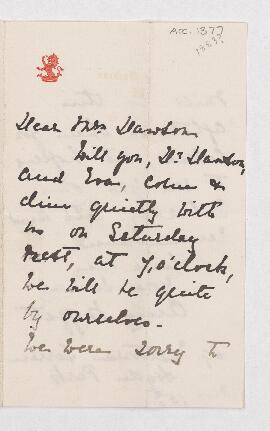 Acc. 1377
Dear Mrs Dawson
Will you, Dr Dawson,
and Eva, come &
dine quietly with
us on Saturday
next, at 7,o'clock,
We will be quite
by ourselves.
We were sorry to